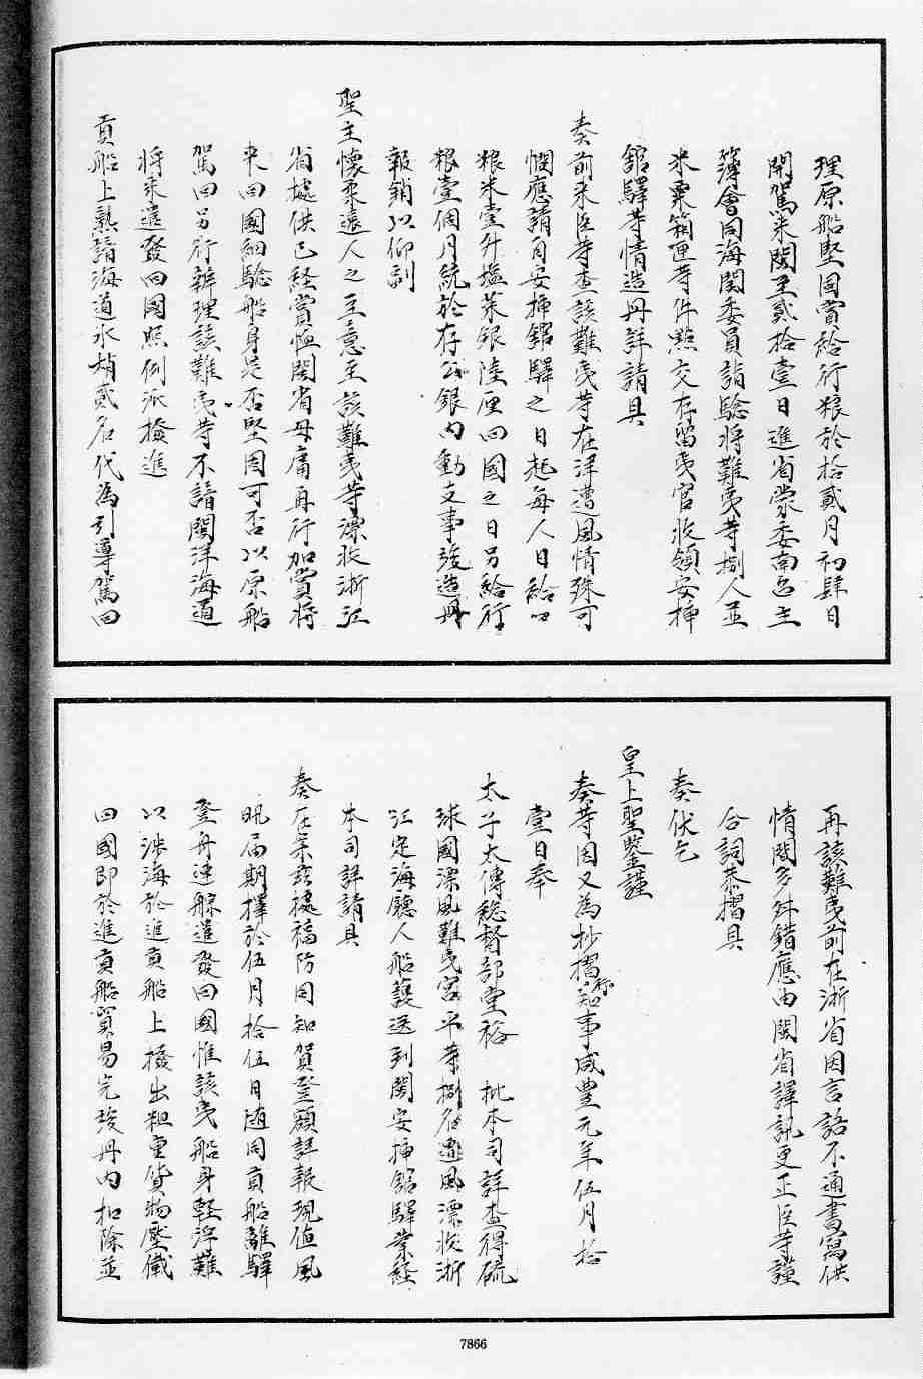 理原船堅固當給行粮於拾貳月初肆日
開駕來閩至貳拾壹日進省蒙委南台主
簿會同海関委員詣驗將難夷等捌人並
米粟箱匣等件點交存留夷官收領安揷
舘驛等情造丹詳請具
奏前来臣等查該難夷等在洋遭風情殊可
憫應請自安揷舘驛之日起每人日給
粮米壹升塩菜銀陸厘回國之日另給行
粮壹個月統於存公銀内動支事竣造冊
報銷以仰副
聖主懷柔遠人之至意至該難夷等漂收浙江
省據供已經賞恤閩省毋庸再行加賞將
来回國細驗船身是否堅固可否以原船
駕回另行辦理該難夷等不諳閩洋海道
將来遣發回國照例派撥進
貢船上熟諳海道水梢貳名代為引導駕回
再該難夷前在浙省因言語不通書寫供
情間多舛錯應由閩省譯訊更正臣等謹
合詞恭摺具
奏伏乞
皇上聖鑒謹
奏等因又為抄摺行知事咸豐元年伍月拾
壹日奉
太子太傅総督部堂裕 批本司詳查得硫
球國漂風難夷宮平等捌名遭風漂收浙
江定海廳人船護送到閩安揷舘驛業經
本司詳請具
奏在案茲據福防同知賀登額詳報現值風
帆届期擇於伍月拾伍日随同貢船離驛
登舟速艍遣發回國惟該夷船身軽浮難
以涉海於進貢船上撥出粗重貨物壓儎
回國即於進貢船貿易完竣丹内扣除並
7866